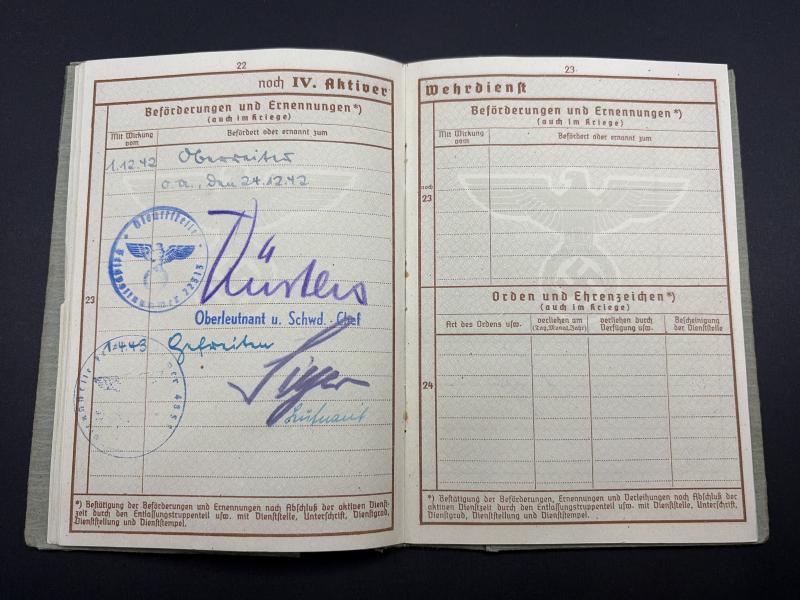 22
noch IV. Aktiver
Beförderungen und Ernennungen*)
(auch im Kriege)
Mit Wirkung vom
Befördert oder ernannt zum
1.12.42 Oberreiter
o.U., den 24.12.42
Dienststelle
Feldpostnummer
23
Oberleutnant u. Schwd.-Chef
1.4.43 Gefreiten
Leutnant
*) Bestätigung der Beförderungen und Ernennungen nach Abschluß der aktiven Dienst-
zeit durch den Entlassungstruppenteil usw. mit Dienststelle, Unterschrift, Dienstgrad,
Dienststellung und Dienststempel.
23
Wehrdienst
Beförderungen und Ernennungen*)
(auch im Kriege)
Mit Wirkung vom
Befördert oder ernannt zum
noch
23
Orden und Ehrenzeichen*)
(auch im Kriege)
Art des Ordens usw.
verliehen am
(Tag, Monat, Jahr)
verliehen durch
Verfügung usw.
Bescheinigung
der Dienststelle
24
*) Bestätigung der Beförderungen, Ernennungen und Verleihungen nach Abschluß der
aktiven Dienstzeit durch den Entlassungstruppenteil usw. mit Dienststelle, Unterschrift,
Dienstgrad, Dienststellung und Dienststempel.